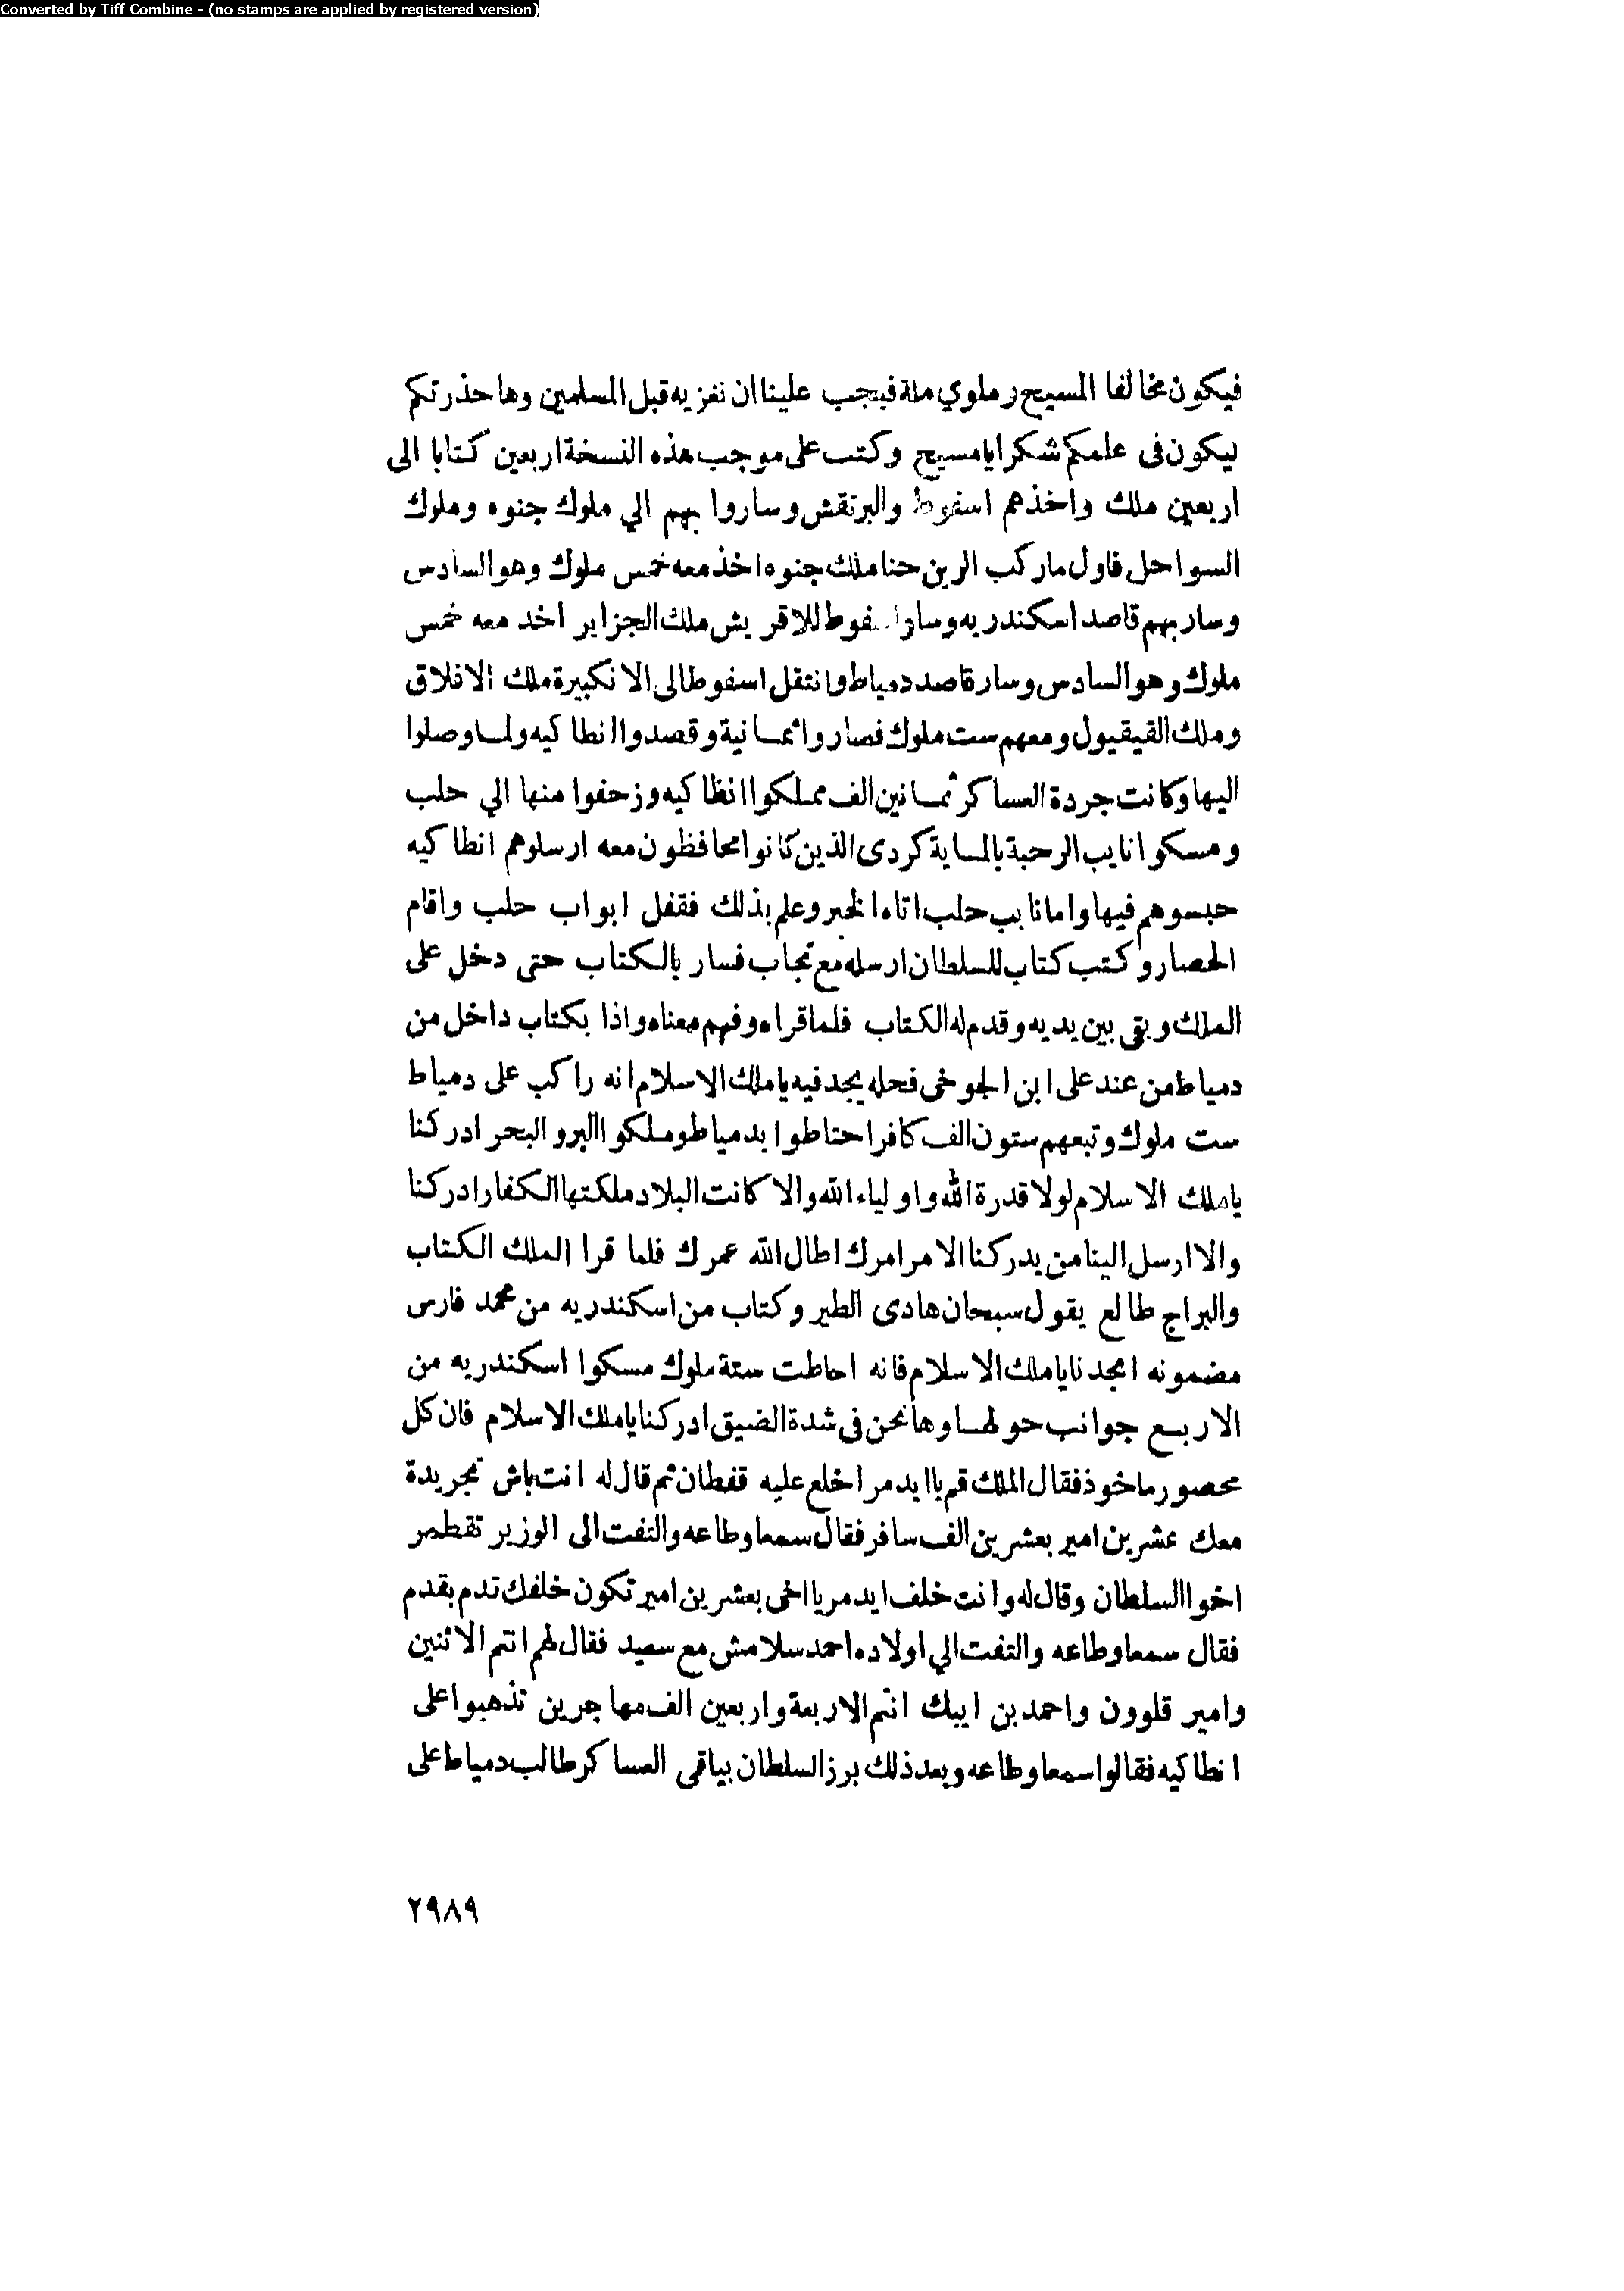 Converted by Tiff Combine - (no stamps are applied by registered version)
فيكون مخالفا المسيح ر ملوي ملة فيجب علينا ان نغزيه قبل المسلمين وها حذرتكم
ليكون فى علمكم شكر ايامسيح وكتب على موجب هذه النسخة اربعين كتابا الى
اربعين ملك واخذهم اسفوط والبرنقش وساروا بهم الي ملوك جنوه وملوك
السواحل فاول ماركب الرين حنا ملك جنوه اخذ معه خمس ملوك وهو السادس
وسار بهم قاصد اسكندريه وسار اسفوط للاقريش ملك الجزاير اخد معه خمس
ملوك وهو السادس وسار قاصد دمياط وانتقل اسفوط الى الانكبيرة ملك الافلاق
وملك القيقيول ومعهم ست ملوك فصاروا ثمانية وقصدوا انطاكيه ولما وصلوا
اليها وكانت جردة العساكر ثمانين الف مملكوا انظاكيه وزحفوا منها الي حلب
ومسكوا نايب الرحبة بالماية كردى الذين كانوا محافظون معه ارسلوهم انطاكيه
حبسوهم فيها واما نايب حلب اتاه الخبر وعلم بذلك فقفل ابواب حلب واقام
الحصار وكتب كتاب للسلطان ارسله مع نجاب فسار بالكتاب حتى دخل على
الملك وبقى بين يديه وقدم له الكتاب فلما قراه وفهم معناه واذا بكتاب داخل من
دمياط من عند على ابن الجوخى فحله يجد فيه ياملك الاسلام انه راكب على دمياط
ست ملوك وتبعهم ستون الف كافر احتاطوا بدمياط وملكوا البر والبحر ادركنا
ياملك الاسلام لولا قدرة الله واولياء الله والا كانت البلاد ملكتها الكفار ادركنا
والا ارسل الينا من يدركنا الامر امرك اطال الله عمرك فلما قرا الملك الكتاب
والبراج طالع يقول سبحان هادى الطير وكتاب من اسكندريه من محمد فارس
مضمونه انجدنا ياملك الاسلام فانه احاطت ستة ملوك مسكوا اسكندريه من
الاربع جوانب حولها وها نحن فى شدة الضيق ادركنا ياملك الاسلام فان كل
محصور ماخوذ فقال الملك قم ياايدمر اخلع عليه قفطان ثم قال له انت باش تجريدة
معك عشرين امير بعشرين الف سافر فقال سمعا وطاعه والتفت الى الوزير تقطمر
اخوا السلطان وقال له وانت خلف ايدمر يااخى بعشرين امير تكون خلفك تدم بقدم
فقال سمعا وطاعه والتفت الي اولاده احمد سلامش مع سعيد فقال لهم انتم الاثنين
وامير قلوون واحمد بن ايبك انتم الاربعة واربعين الف مهاجرين تذهبوا على
انطاكيه فقالوا سمعا وطاعه وبعد ذلك برز السلطان بباقى العساكر طالب دمياط على
٢٩٨٩